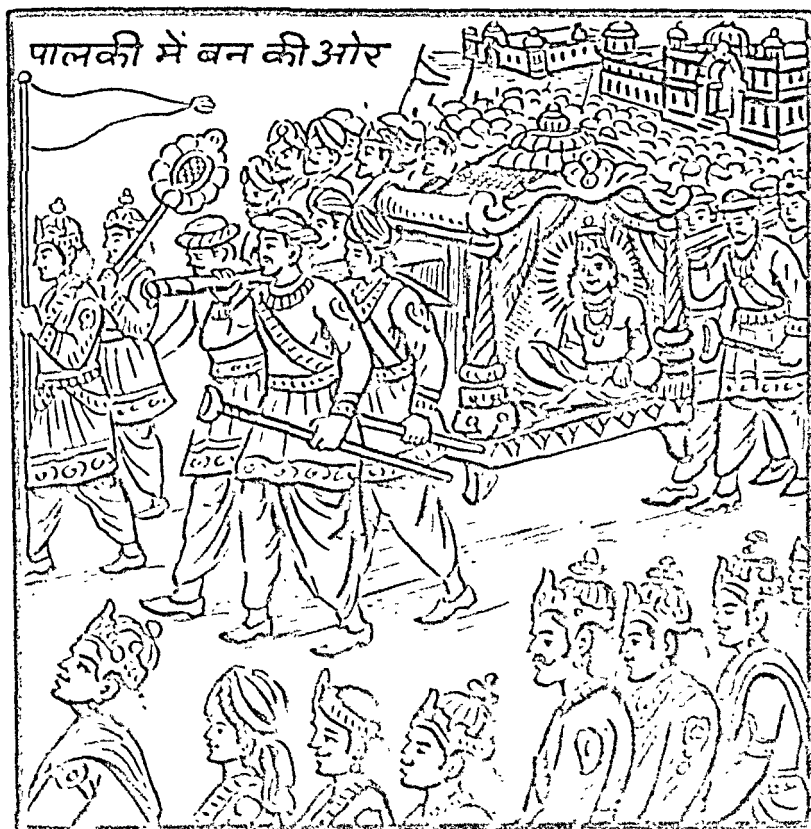 पालकी में बन की ओर